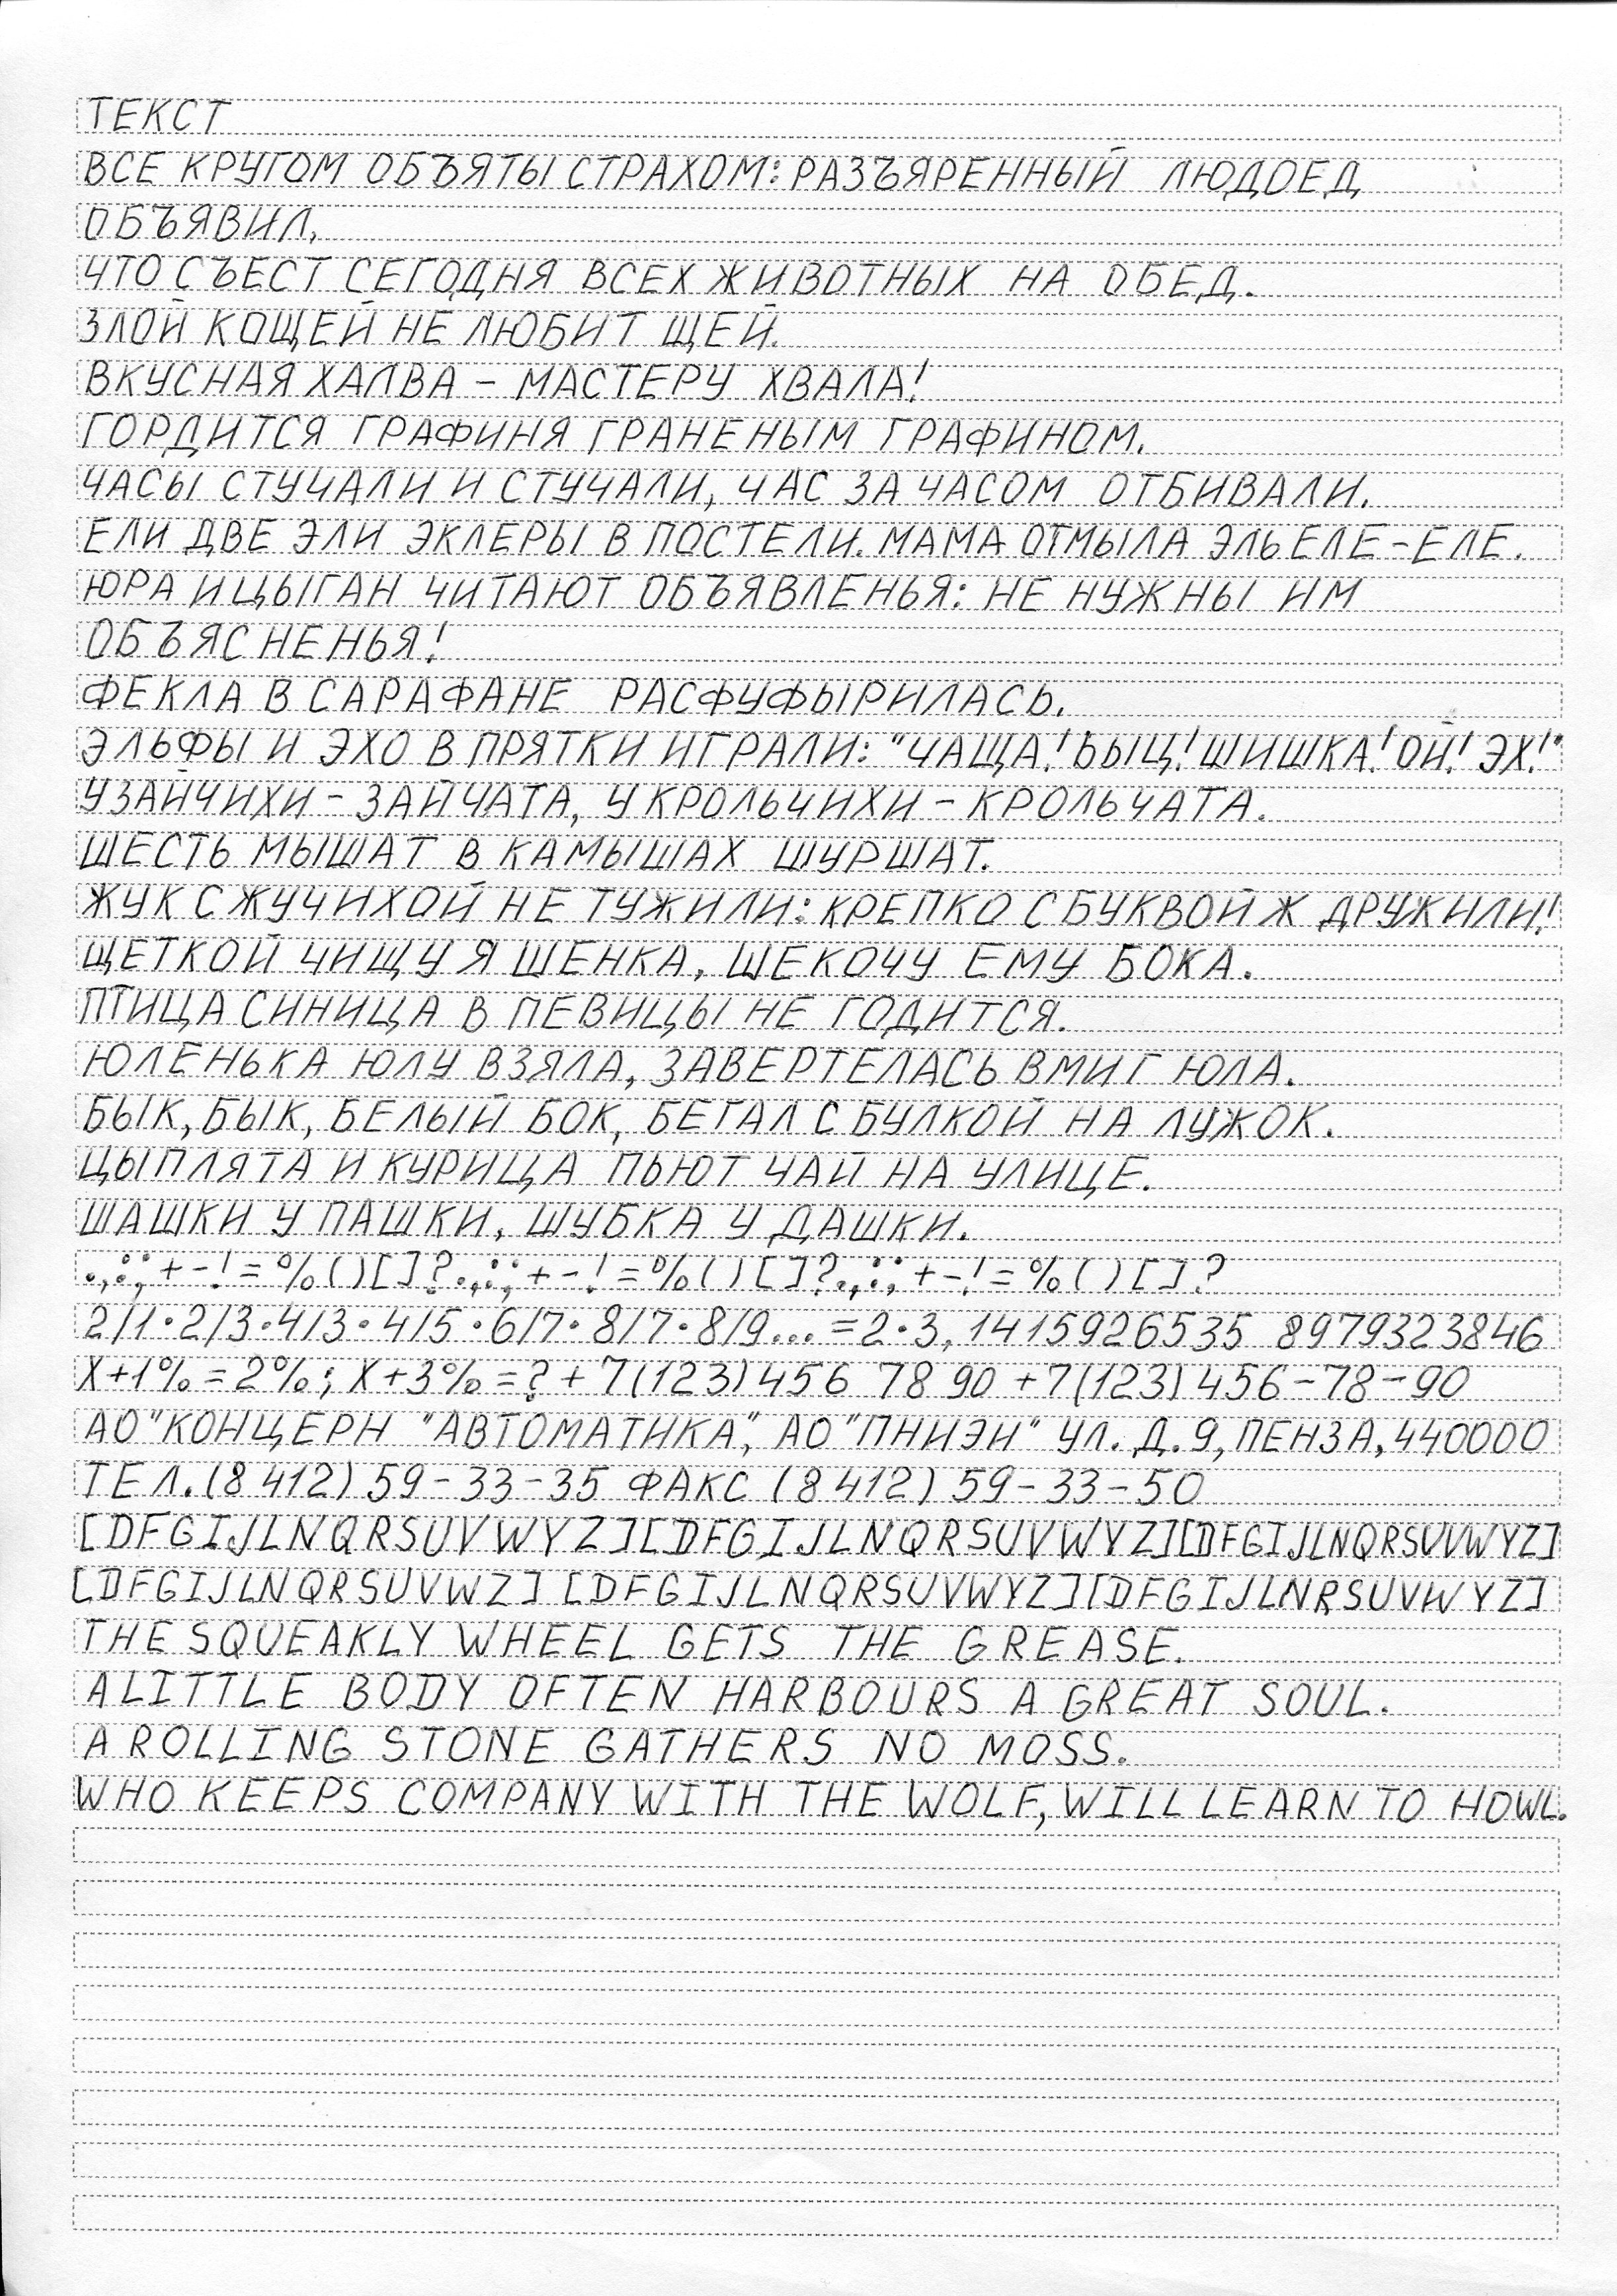 ТЕКСТ
ВСЕ КРУГОМ ОБЪЯТЫ СТРАХОМ: РАЗЪЯРЕННЫЙ ЛЮДОЕД
ОБЪЯВИЛ,
ЧТО СЪЕСТ СЕГОДНЯ ВСЕХ ЖИВОТНЫХ НА ОБЕД.
ЗЛОЙ КОЩЕЙ НЕ ЛЮБИТ ЩЕЙ.
ВКУСНАЯ ХАЛВА - МАСТЕРУ ХВАЛА!
ГОРДИТСЯ ГРАФИНЯ ГРАНЕНЫМ ГРАФИНОМ.
ЧАСЫ СТУЧАЛИ И СТУЧАЛИ, ЧАС ЗА ЧАСОМ ОТБИВАЛИ.
ЕЛИ ДВЕ ЭЛИ ЭКЛЕРЫ В ПОСТЕЛИ. МАМА ОТМЫЛА ЭЛЬ ЕЛЕ-ЕЛЕ.
ЮРА И ЦЫГАН ЧИТАЮТ ОБЪЯВЛЕНЬЯ: НЕ НУЖНЫ ИМ
ОБЪЯСНЕНЬЯ!
ФЕКЛА В САРАФАНЕ РАСФУФЫРИЛАСЬ.
ЭЛЬФЫ И ЭХО В ПРЯТКИ ИГРАЛИ: "ЧАЩА! БЫЦ! ШИШКА! ОЙ! ЭХ!"
У ЗАЙЧИХИ - ЗАЙЧАТА, У КРОЛЬЧИХИ - КРОЛЬЧАТА.
ШЕСТЬ МЫШАТ В КАМЫШАХ ШУРШАТ.
ЖУК С ЖУЧИХОЙ НЕ ТУЖИЛИ: КРЕПКО С БУКВОЙ Ж ДРУЖИЛИ!
ЩЕТКОЙ ЧИЩУ Я ЩЕНКА, ЩЕКОЧУ ЕМУ БОКА.
ПТИЦА СИНИЦА В ПЕВИЦЫ НЕ ГОДИТСЯ.
ЮЛЕНЬКА ЮЛУ ВЗЯЛА, ЗАВЕРТЕЛАСЬ ВМИГ ЮЛА.
БЫК, БЫК, БЕЛЫЙ БОК, БЕГАЛ С БУЛКОЙ НА ЛУЖОК.
ЦЫПЛЯТА И КУРИЦА ПЬЮТ ЧАЙ НА УЛИЦЕ.
ШАШКИ У ПАШКИ, ШУБКА У ДАШКИ.
.,:;+-!=%()[]?.,:;+-!=%()[]?.,:;+-!=%()[]?
2/1·2/3·4/3·4/5·6/7·8/7·8/9...=2·3,1415926535 8979323846
X+1%=2%; X+3%=?+7(123)456 78 90 +7(123)456-78-90
АО "КОНЦЕРН "АВТОМАТИКА", АО "ПНИЭИ" УЛ. Д. 9, ПЕНЗА, 440000
ТЕЛ. (8412) 59-33-35 ФАКС (8412) 59-33-50
[DFGIJLNQRSUVWYZ][DFGIJLNQRSUVWYZ][DFGIJLNQRSUVWYZ]
[DFGIJLNQRSUVWZ] [DFGIJLNQRSUVWYZ][DFGIJLNRSUVWYZ]
THE SQUEAKLY WHEEL GETS THE GREASE.
A LITTLE BODY OFTEN HARBOURS A GREAT SOUL.
A ROLLING STONE GATHERS NO MOSS.
WHO KEEPS COMPANY WITH THE WOLF, WILL LEARN TO HOWL.